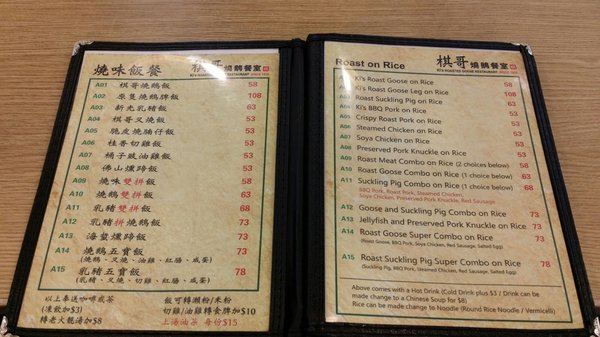 燒味飯餐
棋哥燒鵝餐室
KI'S ROASTED GOOSE RESTAURANT
A01 棋哥燒鵝飯 58
A02 原隻燒鵝髀飯 108
A03 新光乳豬飯 63
A04 棋哥叉燒飯 53
A05 脆皮燒腩仔飯 53
A06 桂香切雞飯 53
A07 桶子豉油雞飯 53
A08 佛山燻蹄飯 53
A09 燒味雙拼飯 58
A10 燒鵝雙拼飯 63
A11 乳豬雙拼飯 68
A12 乳豬拼燒鵝飯 73
A13 海蜇燻蹄飯 73
A14 燒鵝五寶飯 73
(燒鵝、叉燒、油雞、紅腸、咸蛋)
A15 乳豬五寶飯 78
(乳豬、叉燒、切雞、紅腸、咸蛋)
以上奉送咖啡或茶
(凍飲加$3)
轉老火靚湯加$8
飯可轉瀨粉/米粉
切雞/油雞轉食脾加$10
上湯油菜 每份$15
Roast on Rice
棋哥燒鵝餐室
KI'S ROASTED GOOSE RESTAURANT
A01 Ki's Roast Goose on Rice 58
A02 Ki's Roast Goose Leg on Rice 108
A03 Roast Suckling Pig on Rice 63
A04 Ki's BBQ Pork on Rice 53
A05 Crispy Roast Pork on Rice 53
A06 Steamed Chicken on Rice 53
A07 Soya Chicken on Rice 53
A08 Preserved Pork Knuckle on Rice 53
A09 Roast Meat Combo on Rice (2 choices below) 58
A10 Roast Goose Combo on Rice (1 choice below) 63
A11 Suckling Pig Combo on Rice (1 choice below) 68
BBQ Pork, Roast Pork, Steamed Chicken,
Soya Chicken, Preserved Pork Knuckle, Red Sausage
A12 Goose and Suckling Pig Combo on Rice 73
A13 Jellyfish and Preserved Pork Knuckle on Rice 73
A14 Roast Goose Super Combo on Rice 73
(Roast Goose, BBQ Pork, Soya Chicken, Red Sausage, Salted Egg)
A15 Roast Suckling Pig Super Combo on Rice 78
(Suckling Pig, BBQ Pork, Steamed Chicken, Red Sausage, Salted Egg)
Above comes with a Hot Drink (Cold Drink plus $3 / Drink can be
made change to a Chinese Soup for $8)
Rice can be made change to Noodle (Round Rice Noodle / Vermicelli)